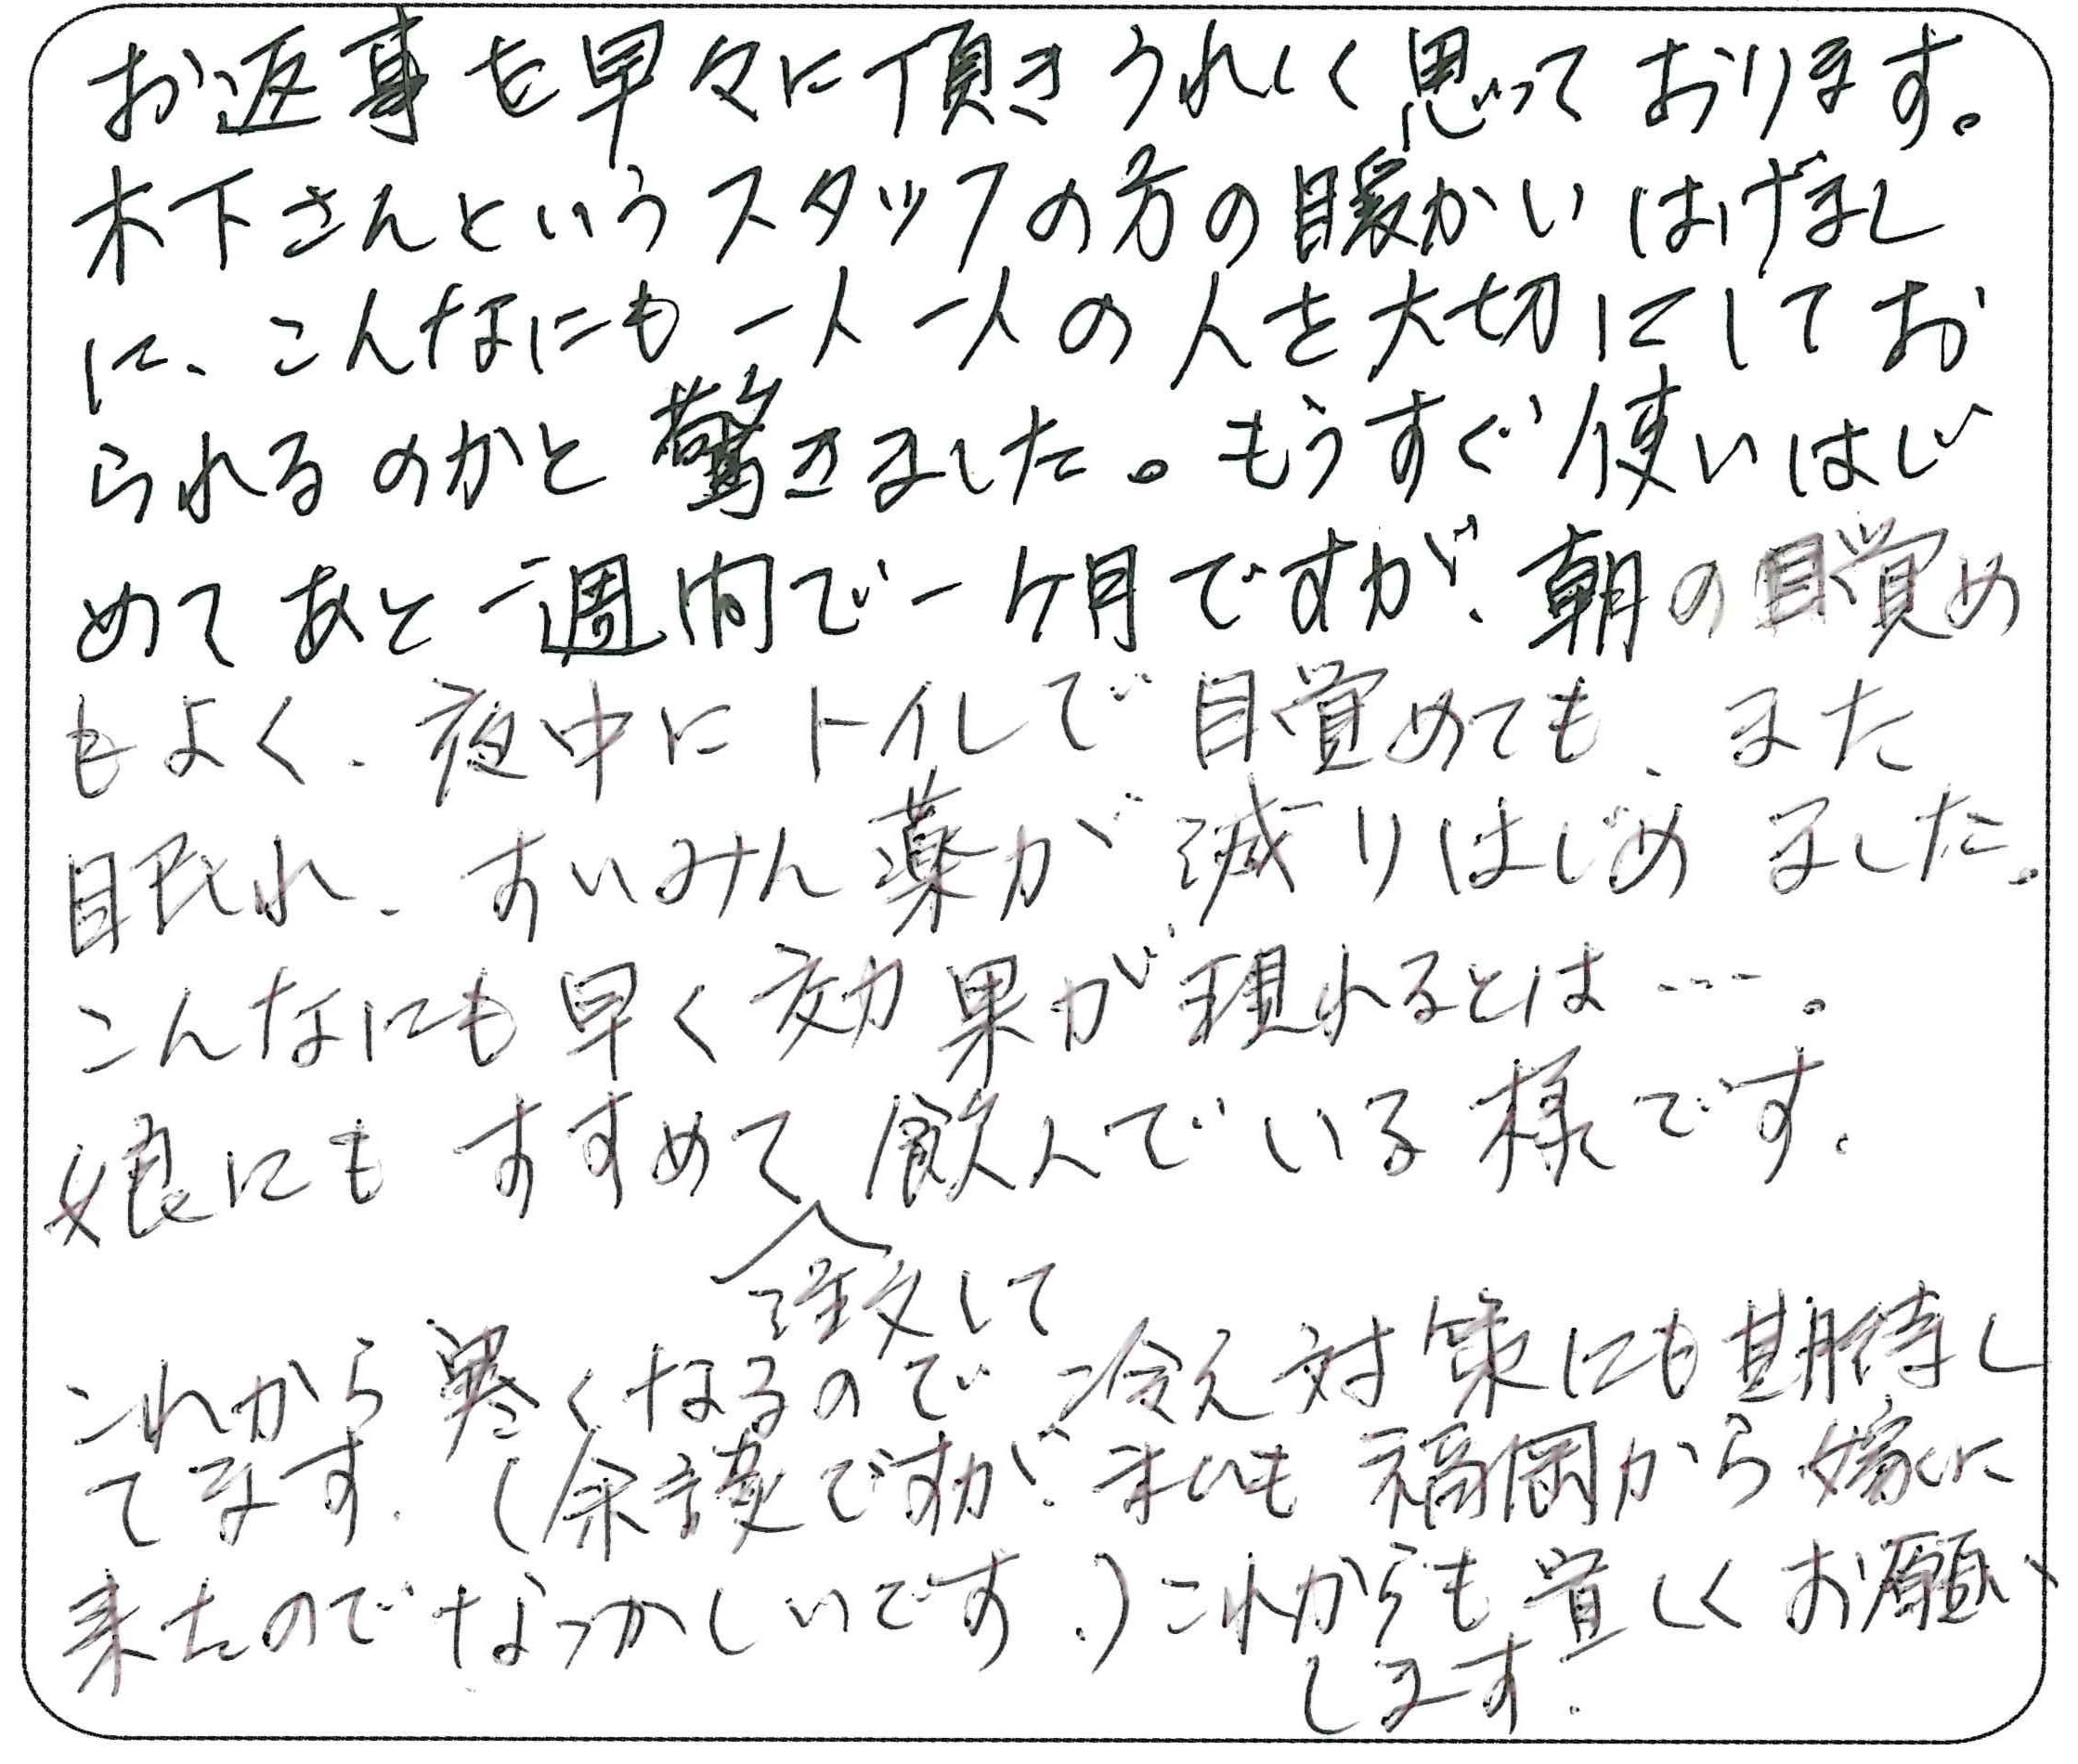 お返事を早々に頂きうれしく思っております。
木下さんというスタッフの方の暖かいはげまし
に、こんなにも一人一人の人を大切にしてお
られるのかと驚きました。もうすぐ使いはじ
めてあと一週間で一ケ月ですが、朝の目覚め
もよく、夜中にトイレで目覚めても、また
眠れ、すいみん薬が減りはじめました。
こんなにも早く効果が現れるとは…。
娘にもすすめて飲んでいる様です。
注文して
これから寒くなるので冷え対策にも期待し
てます。(余談ですが、私も福岡から嫁に
来たのでなつかしいです。)これからも宜しくお願い
します。